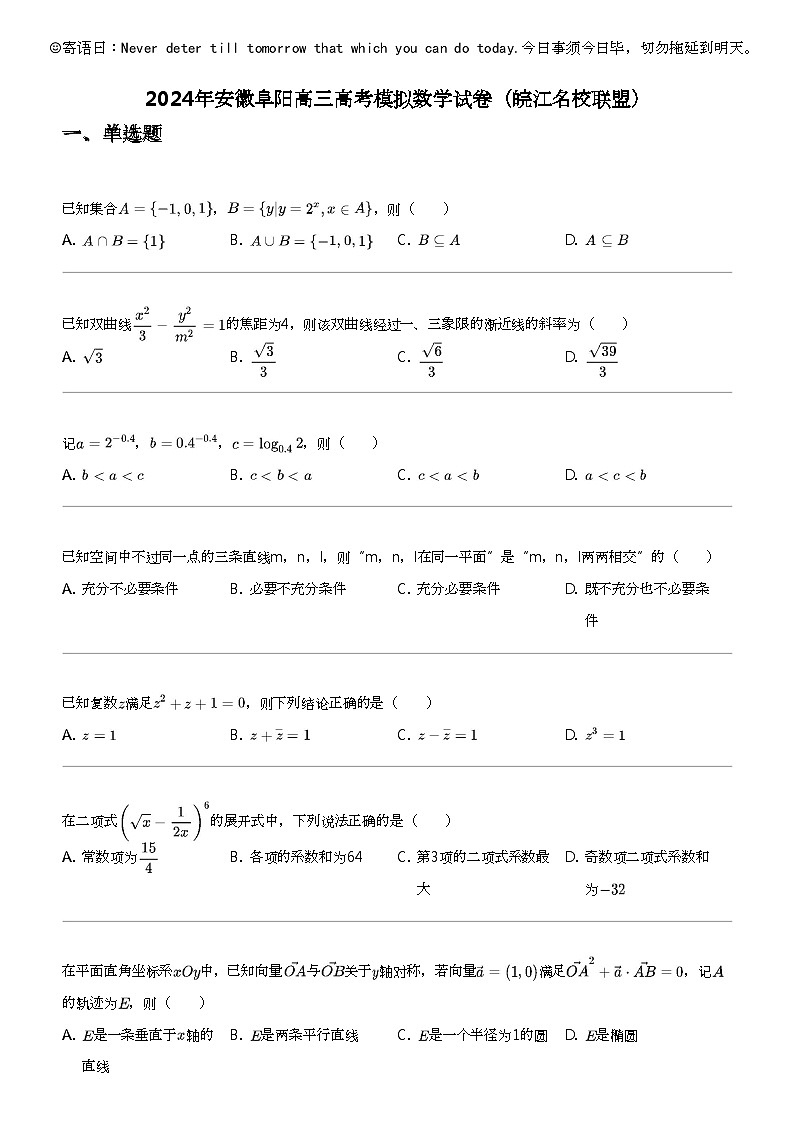 ☺寄语日：Never deter till tomorrow that which you can do today.今日事须今日毕，切勿拖延到明天。
2024年安徽阜阳高三高考模拟数学试卷（皖江名校联盟）
一、单选题
已知集合A = {−1, 0, 1}，B = {y|y = 2^x, x ∈ A}，则（  ）
A. A ∩ B = {1} B. A ∪ B = {−1, 0, 1} C. B ⊆ A D. A ⊆ B
已知双曲线x²/3 − y²/m² = 1的焦距为4，则该双曲线经过一、三象限的渐近线的斜率为（  ）
A. √3 B. √3/3 C. √6/3 D. √39/3
记a = 2^{−0.4}，b = 0.4^{−0.4}，c = log_{0.4} 2，则（  ）
A. b < a < c B. c < b < a C. c < a < b D. a < c < b
已知空间中不过同一点的三条直线m，n，l，则“m，n，l在同一平面”是“m，n，l两两相交”的（  ）
A. 充分不必要条件 B. 必要不充分条件 C. 充分必要条件 D. 既不充分也不必要条
件
已知复数z满足z² + z + 1 = 0，则下列结论正确的是（  ）
A. z = 1 B. z + z̄ = 1 C. z − z̄ = 1 D. z³ = 1
在二项式(√x − 1/2x)⁶的展开式中，下列说法正确的是（  ）
A. 常数项为15/4 B. 各项的系数和为64 C. 第3项的二项式系数最 D. 奇数项二项式系数和
大 为−32
在平面直角坐标系xOy中，已知向量O⃗A与O⃗B关于y轴对称，若向量a⃗ = (1, 0)满足O⃗A² + a⃗ · A⃗B = 0，记A
的轨迹为E，则（  ）
A. E是一条垂直于x轴的 B. E是两条平行直线 C. E是一个半径为1的圆 D. E是椭圆
直线